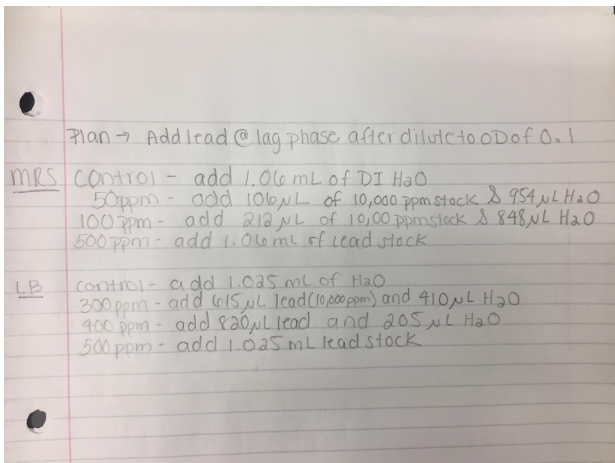 Plan → Add lead @ lag phase after dilute to OD of 0.1
MRS control - add 1.06 mL of DI H2O
50ppm - add 106 µL of 10,000 ppm stock & 954 µL H2O
100 ppm - add 212 µL of 10,00 ppm stock & 848 µL H2O
500 ppm - add 1.06 mL of lead stock
LB control - add 1.025 mL of H2O
300 ppm - add 615 µL lead (10,000 ppm) and 410 µL H2O
400 ppm - add 820 µL lead and 205 µL H2O
500 ppm - add 1.025 mL lead stock